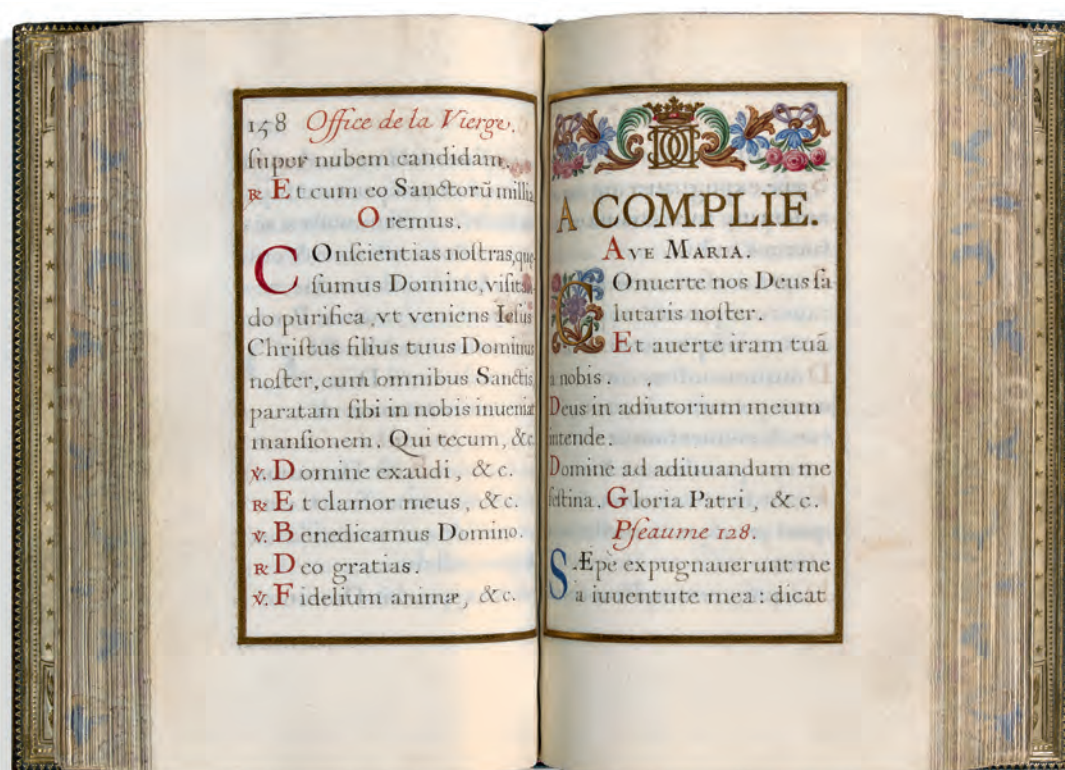 158 Office de la Vierge.
ſuper nubem candidam.
℟ Et cum eo Sanctorũ millia
Oremus.
COnſcientias noſtras, que-
ſumus Domine, viſitan-
do purifica, vt veniens Ieſus
Chriſtus filius tuus Dominus
noſter, cum omnibus Sanctis,
paratam ſibi in nobis inueniat
manſionem. Qui tecum, &c.
℣. Domine exaudi, &c.
℟ Et clamor meus, &c.
℣. Benedicamus Domino.
℟ Deo gratias.
℣. Fidelium animæ, &c.
A COMPLIE.
AVE MARIA.
COnuerte nos Deus ſa
lutaris noſter.
Et auerte iram tuã
a nobis.
Deus in adiutorium meum
intende.
Domine ad adiuuandum me
feſtina. Gloria Patri, &c.
Pſeaume 128.
SÆpè expugnauerunt me
a iuuentute mea: dicat